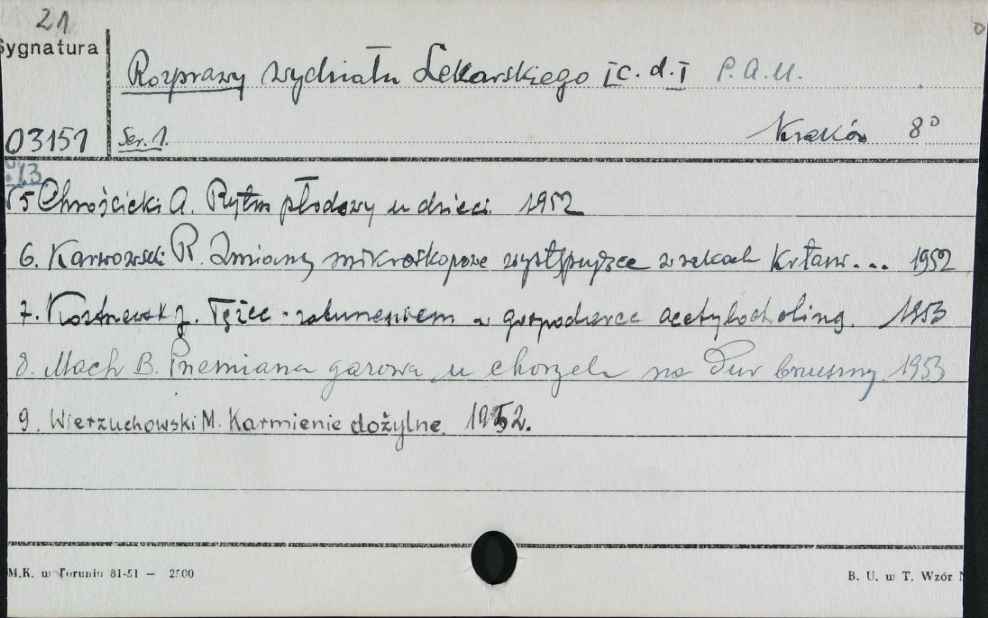 21
Sygnatura
Rozprawy Wydziału Lekarskiego [c. d.] P. A. U.
03151 Ser. 1. Kraków 8°
:13
5 Chrościcki A. Rytm płodowy u dzieci 1952
6. Karwowski R. Zmiany mikroskopowe występujące w rękach 1952
7. J. Tężec zaburzeniem w gospodarce acetylocholiną. 1953
8. Mach B. Przemiana gazowa u chorych na Dur brzuszny. 1953
9. Wierzuchowski M. Karmienie dożylne. 1952.
M.K. w Toruniu 81-51 — 2500
B. U. w T. Wzór